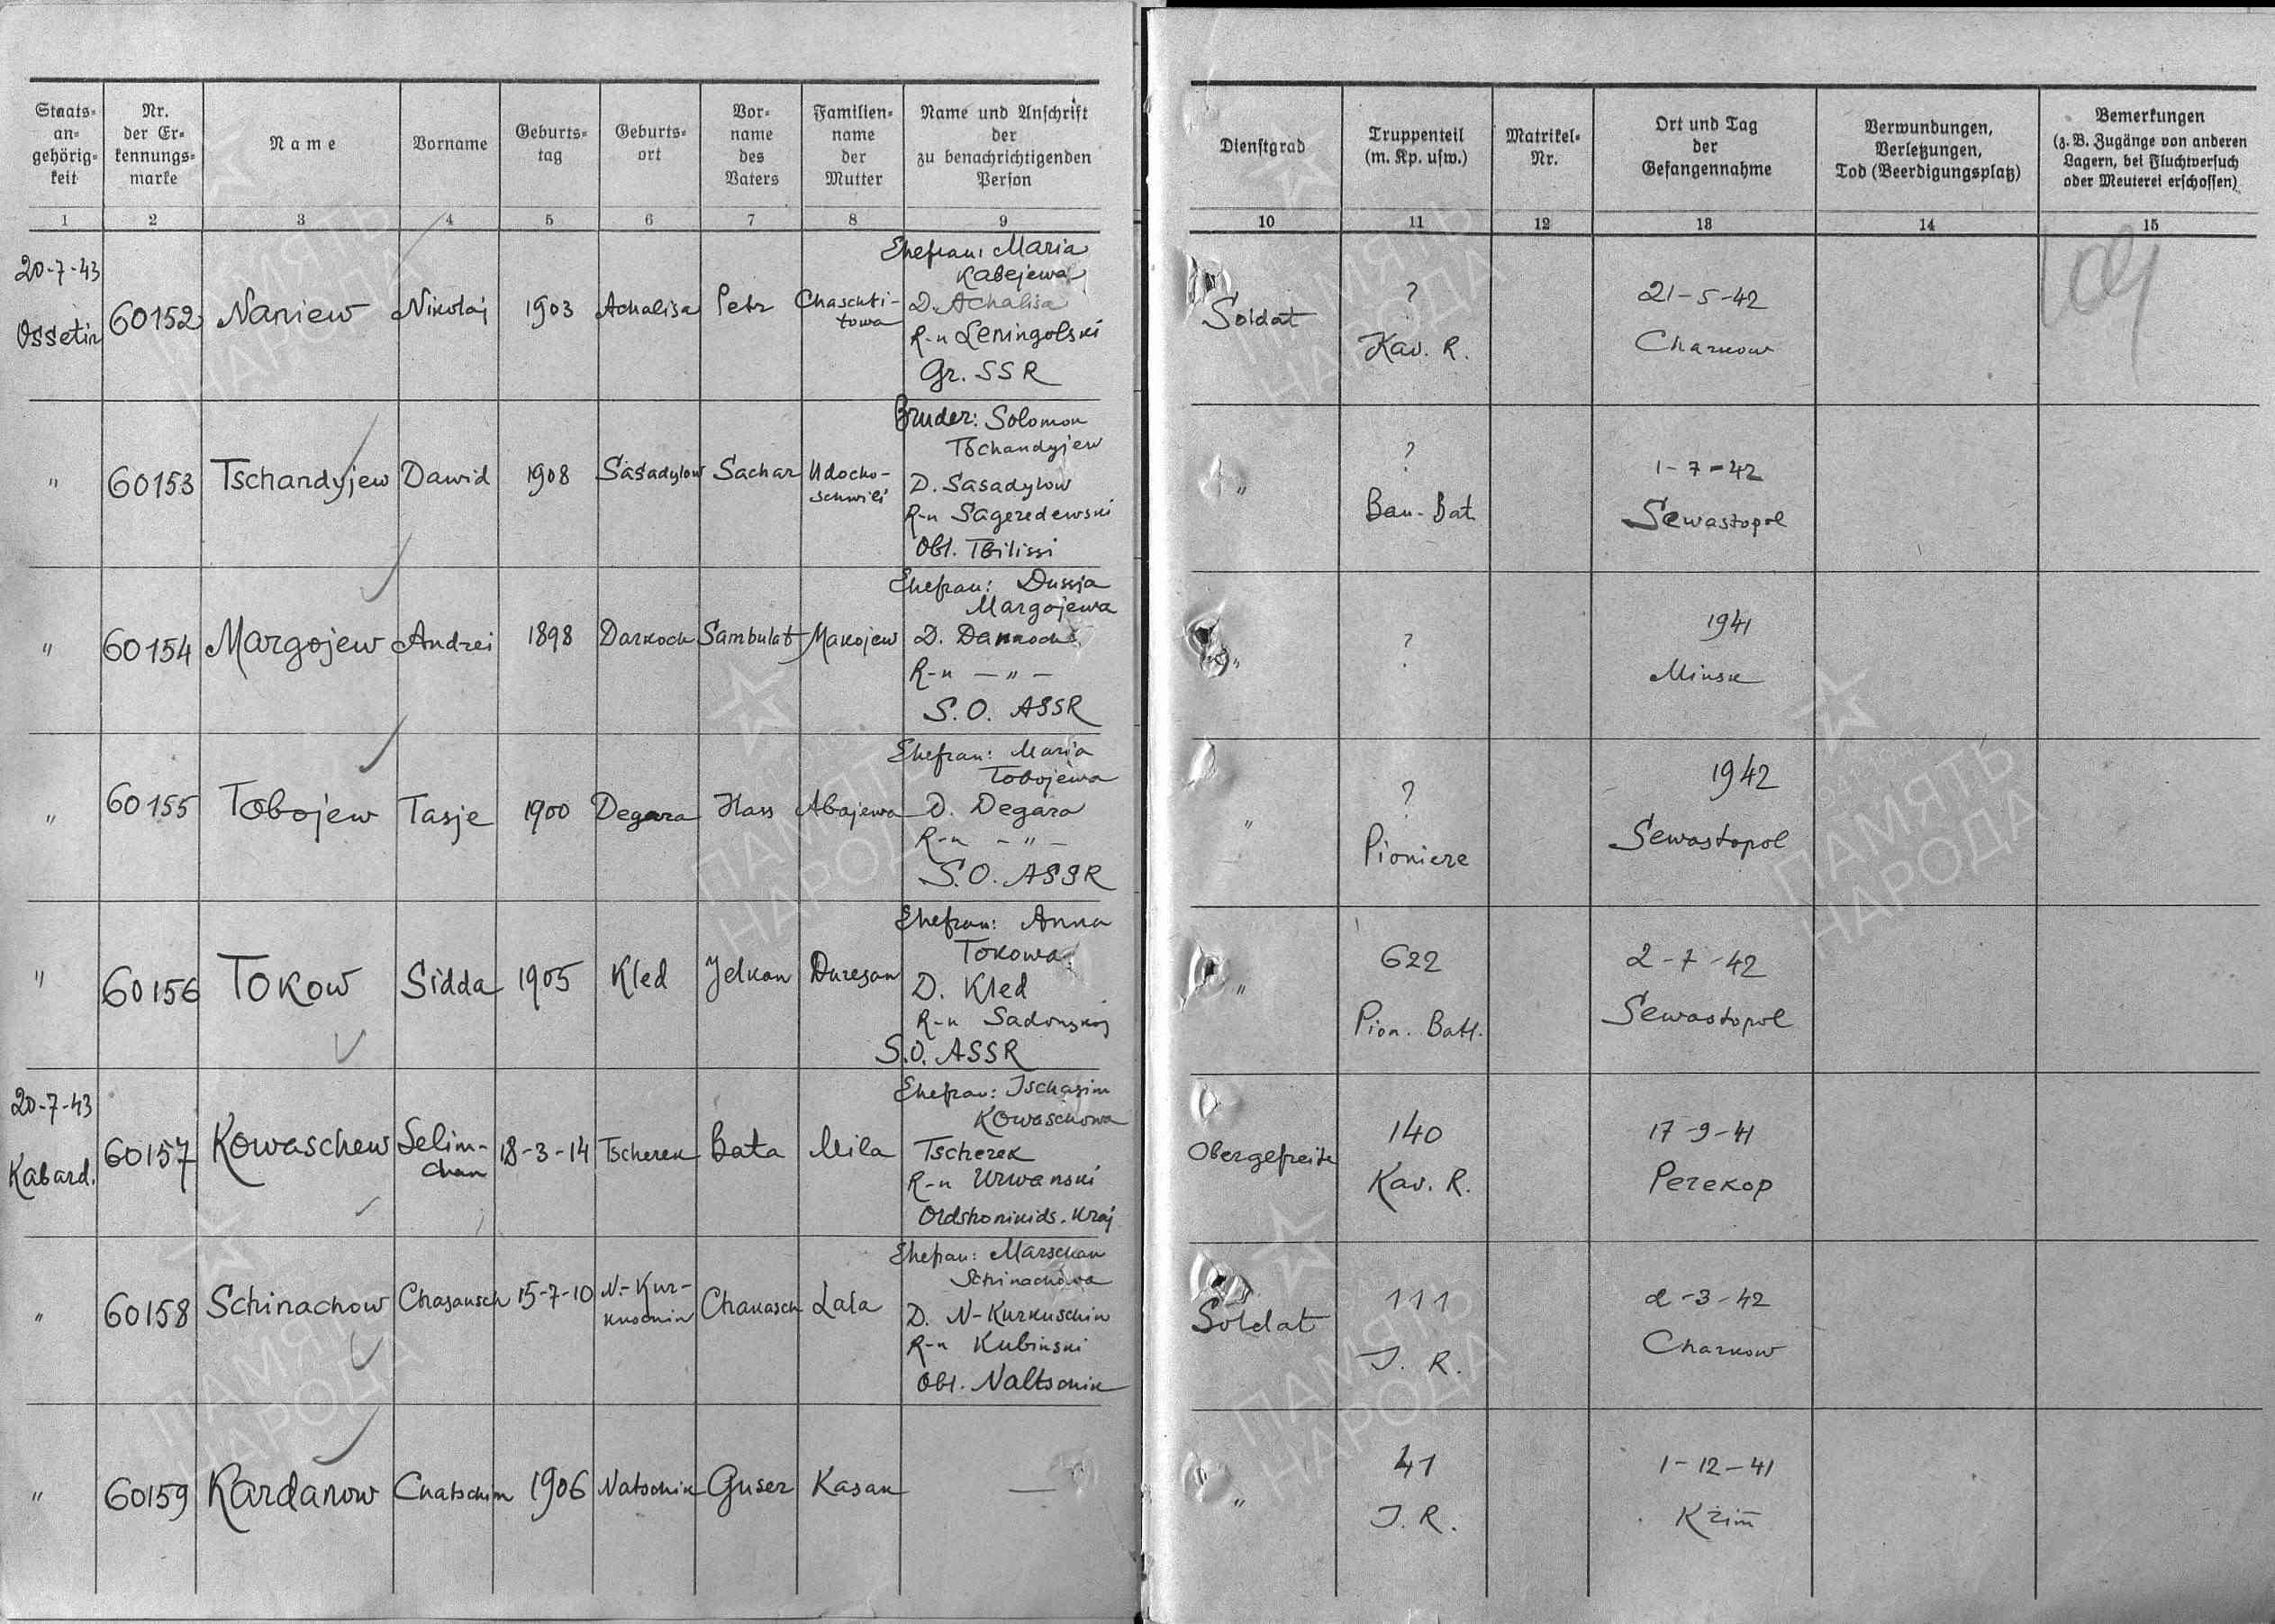 Staats-
an-
gehörig-
keit
Nr.
der Er-
kennungs-
marke
Name
Vorname
Geburts-
tag
Geburts-
ort
Vor-
name
des
Vaters
Familien-
name
der
Mutter
Name und Anschrift
der
zu benachrichtigenden
Person
Dienstgrad
Truppenteil
(m. Kp. usw.)
Matrikel-
Nr.
Ort und Tag
der
Gefangennahme
Verwundungen,
Verletzungen,
Tod (Beerdigungsplatz)
Bemerkungen
(z. B. Zugänge von anderen
Lagern, bei Fluchtversuch
oder Meuterei erschossen)
1 2 3 4 5 6 7 8 9 10 11 12 13 14 15
20-7-43
Ossetin
60152
Naniew
Nikolaj
1903
Achalisa
Petr
Chaschti-
towa
Ehefrau: Maria
Kabejewa
D. Achalisa
R-n Leningolski
Gr. SSR
Soldat
?
Kav. R.
21-5-42
Charkow
"
60153
Tschandyjew
Dawid
1908
Sasadylow
Sachar
Udocho-
schwili
Bruder: Solomon
Tschandyjew
D. Sasadylow
R-n Sageredewski
Obl. Tbilissi
"
?
Bau-Bat
1-7-42
Sewastopol
"
60154
Margojew
Andrei
1898
Darkoch
Sambulat
Makojew
Ehefrau: Dussja
Margojewa
D. Darkoch
R-n — " —
S.O. ASSR
"
?
1941
Minsk
"
60155
Tobojew
Tasje
1900
Degara
Hass
Abajewa
Ehefrau: Maria
Tobojewa
D. Degara
R-n - " -
S.O. ASSR
"
?
Pioniere
1942
Sewastopol
"
60156
Tokow
Sidda
1905
Kled
Jelkan
Duresan
Ehefrau: Anna
Tokowa
D. Kled
R-n Sadonskoj
S.O. ASSR
"
622
Pion. Batl.
2-7-42
Sewastopol
20-7-43
Kabard.
60157
Kowaschew
Selim-
chan
18-3-14
Tscherek
Bata
Mila
Ehefrau: Ischagim
Kowaschowa
Tscherek
R-n Urwanski
Ordshonikids. Kraj
Obergefreite
140
Kav. R.
17-9-41
Perekop
"
60158
Schinachow
Chasansch
15-7-10
N.-Kur-
kuschin
Chanasch
Lala
Ehefrau: Marschan
Schinachowa
D. N-Kurkuschin
R-n Kubinski
Obl. Naltschik
Soldat
111
J. R.
2-3-42
Charkow
"
60159
Kardanow
Chatschim
1906
Natschik
Guser
Kasak
—
"
41
J. R.
1-12-41
Krim
ПАМЯТЬ
НАРОДА
ПАМЯТЬ
НАРОДА
ПАМЯТЬ
НАРОДА
ПАМЯТЬ
НАРОДА
ПАМЯТЬ
НАРОДА
ПАМЯТЬ
НАРОДА